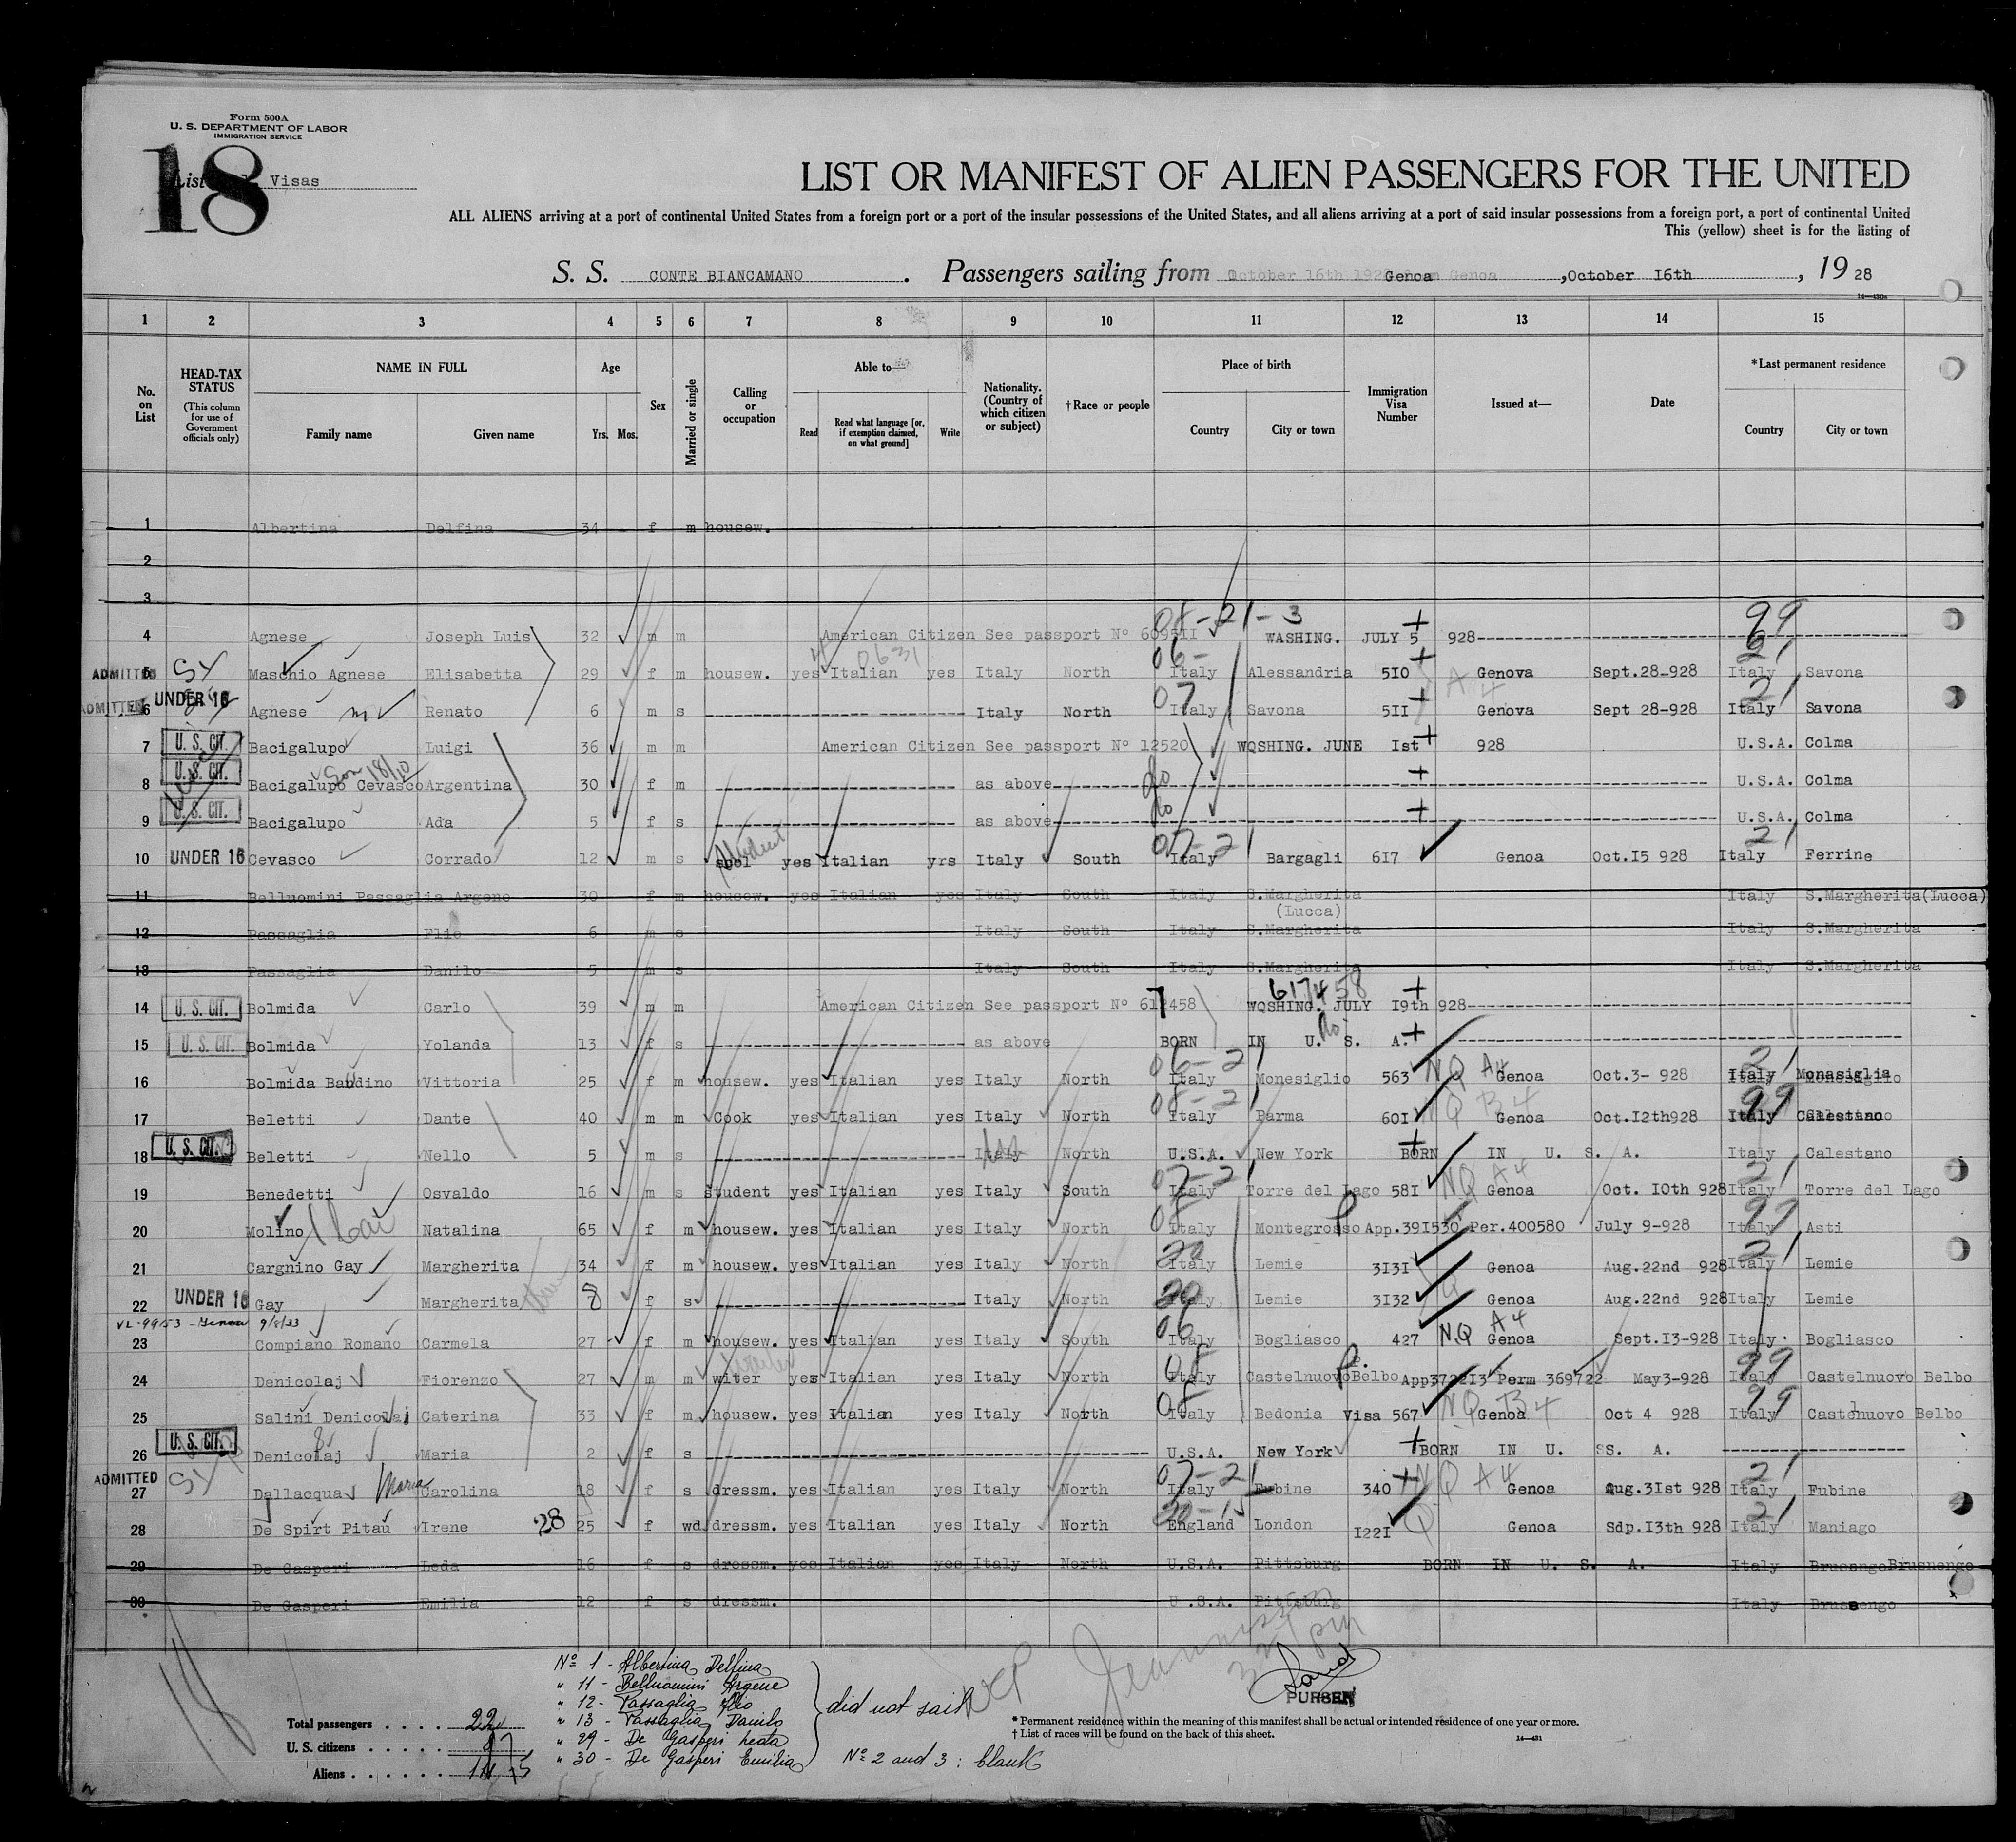 Form 500A
U. S. DEPARTMENT OF LABOR
IMMIGRATION SERVICE
18
List Visas
LIST OR MANIFEST OF ALIEN PASSENGERS FOR THE UNITED
ALL ALIENS arriving at a port of continental United States from a foreign port or a port of the insular possessions of the United States, and all aliens arriving at a port of said insular possessions from a foreign port, a port of continental United
This (yellow) sheet is for the listing of
S. S. CONTE BIANCAMANO . Passengers sailing from Genoa ,October I6th , 19 28
1 2 3 4 5 6 7 8 9 10 11 12 13 14 15
No. on List
HEAD-TAX STATUS (This column for use of Government officials only)
NAME IN FULL Family name Given name
Age Yrs. Mos.
Sex
Married or single
Calling or occupation
Able to— Read Read what language [or, if exemption claimed, on what ground] Write
Nationality. (Country of which citizen or subject)
†Race or people
Place of birth Country City or town
Immigration Visa Number
Issued at—
Date
*Last permanent residence Country City or town
1 Albertina Delfina 34 f m housew.
2
3
08-21-3 99
4 Agnese Joseph Luis 32 m m American Citizen See passport Nº WASHING. JULY 5 928
ADMITTED 5 SY Maschio Agnese Elisabetta 29 f m housew. yes Italian yes Italy North Italy Alessandria 5I0 Genova Sept.28-928 Italy Savona
ADMITTED 6 UNDER 16 Agnese Renato 6 m s Italy North Italy Savona 5II Genova Sept 28-928 Italy Savona
7 U. S. CIT. Bacigalupo Luigi 36 m m American Citizen See passport Nº I2520 WQSHING. JUNE Ist 928 U.S.A. Colma
8 U. S. CIT. Bacigalupo Cevasco Argentina 30 f m as above U.S.A. Colma
9 U. S. CIT. Bacigalupo Ada 5 f s as above U.S.A. Colma
10 UNDER 16 Cevasco Corrado 12 m s student yes Italian yrs Italy South Italy Bargagli 6I7 Genoa Oct.I5 928 Italy Ferrine
11 Belluomini Passaglia Argene 30 f m housew. yes Italian yes Italy South Italy S.Margherita (Lucca) Italy S.Margherita(Lucca)
12 Passaglia Elio 6 m s Italy South Italy S.Margherita Italy S.Margherita
13 Passaglia Danilo 5 m s Italy South Italy S.Margherita Italy S.Margherita
617458
14 U. S. CIT. Bolmida Carlo 39 m m American Citizen See passport Nº 617458 WQSHING. JULY I9th 928
15 U. S. CIT. Bolmida Yolanda 13 f s as above BORN IN U. S. A.
16 Bolmida Baudino Vittoria 25 f m housew. yes Italian yes Italy North Italy Monesiglio 563 NQ A4 Genoa Oct.3- 928 Italy Monasiglia
17 Beletti Dante 40 m m Cook yes Italian yes Italy North Italy Parma 60I NQ B4 Genoa Oct.I2th928 Italy Calestano
18 U. S. CIT. Beletti Nello 5 m s Italy North U.S.A. New York BORN IN U. S. A. Italy Calestano
19 Benedetti Osvaldo 16 m s student yes Italian yes Italy South Italy Torre del Lago 58I NQ A4 Genoa Oct. I0th 928 Italy Torre del Lago
20 Molino Natalina 65 f m housew. yes Italian yes Italy North Italy Montegrosso App.39I530 Per.400580 July 9-928 Italy Asti
21 Cargnino Gay Margherita 34 f m housew. yes Italian yes Italy North Italy Lemie 3I3I Genoa Aug.22nd 928 Italy Lemie
22 UNDER 16 Gay Margherita 8 f s Italy North Italy Lemie 3I32 Genoa Aug.22nd 928 Italy Lemie
VL-99153 - Genoa 9/8/33
23 Compiano Romano Carmela 27 f m housew. yes Italian yes Italy South Italy Bogliasco 427 N.Q A4 Genoa Sept.I3-928 Italy Bogliasco
24 Denicolaj Fiorenzo 27 m m witer yes Italian yes Italy North Italy Castelnuovo Belbo App372213 Perm 369722 May3-928 Italy Castelnuovo Belbo
25 Salini Denicolaj Caterina 33 f m housew. yes Italian yes Italy North Italy Bedonia Visa 567 NQ B4 Genoa Oct 4 928 Italy Castelnuovo Belbo
26 U. S. CIT. Denicolaj Maria 2 f s U.S.A. New York BORN IN U. SS. A.
ADMITTED 27 SY Dallacqua Maria Carolina 18 f s dressm. yes Italian yes Italy North Italy Fubine 340 NQ A4 Genoa Aug.3Ist 928 Italy Fubine
28 De Spirt Pitau Irene 28 25 f wd dressm. yes Italian yes Italy North England London I22I Q Genoa Sdp.I3th 928 Italy Maniago
29 De Gasperi Leda 16 f s dressm. yes Italian yes Italy North U.S.A. Pittsburg BORN IN U. S. A. Italy Brusnengo
30 De Gasperi Emilia 12 f s dressm. U.S.A. Pittsburg Italy Brusnengo
Nº 1 - Albertina Delfina
" 11 - Belluomini Argene
" 12 - Passaglia Elio
" 13 - Passaglia Danilo
" 29 - De Gasperi Leda
" 30 - De Gasperi Emilia
did not sail
Nº 2 and 3 : blank
Total passengers . . . . 22
U. S. citizens . . . . . 7
Aliens . . . . . . 15
PURSER
* Permanent residence within the meaning of this manifest shall be actual or intended residence of one year or more.
† List of races will be found on the back of this sheet.
14—431